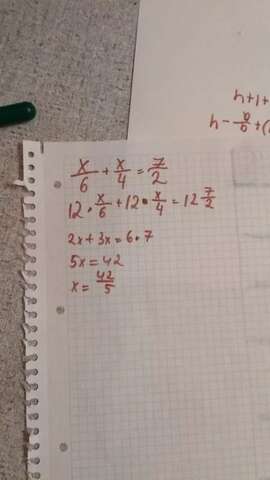 x/6 + x/4 = 7/2
12 • x/6 + 12 • x/4 = 12 7/2
2x + 3x = 6 • 7
5x = 42
x = 42/5